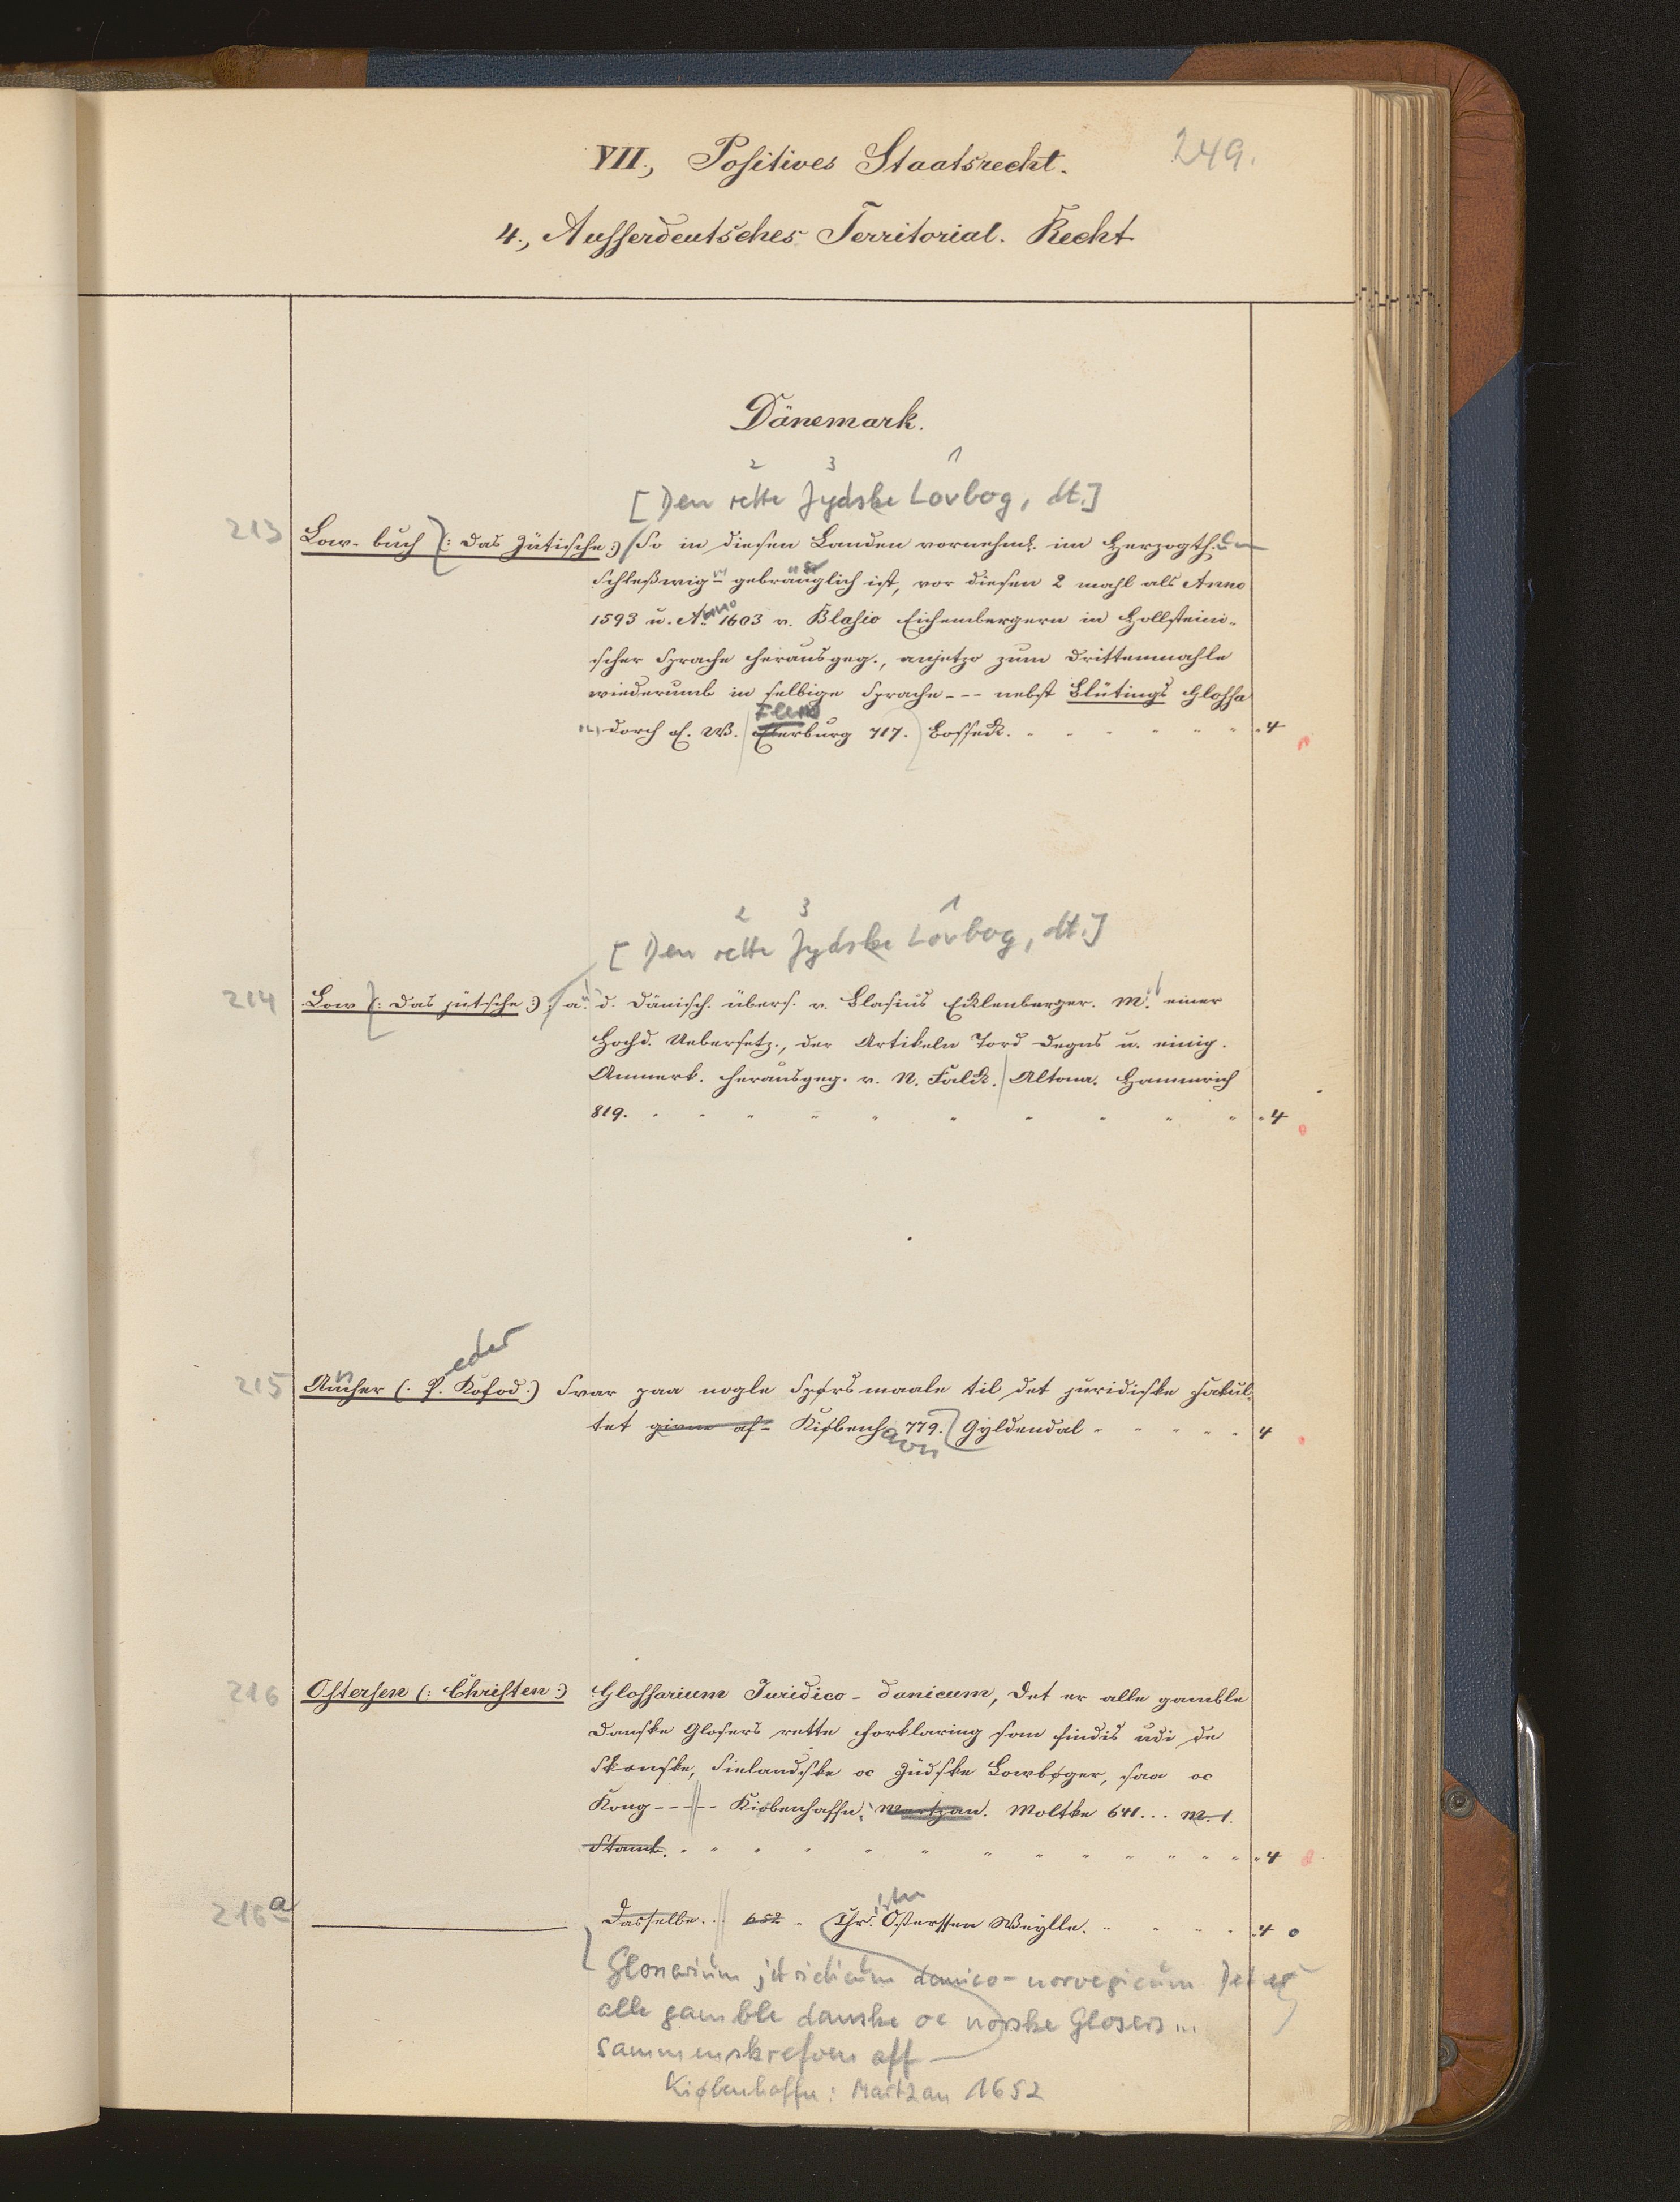 249.
VII., Positives Staatsrecht.
4., Ausserdeutsches Territorial. Recht
Dänemark.
2 3 1
[Den rette Jydske Lovbog, dt.]
213 Low-buch (: das Jütische :) So in diesen Landen vornehml. im Herzogth.
Schleßwig gebräuglich ist, vor diesen 2 mahl als Anno
1593 u. Ao 1603 v. Blasio Eichenbergern in Hollsteini-
scher Sprache herausgeg., anjetzo zum drittenmahle
wiederumb in selbige Sprache --- nebst Blütings Glossa
durch E. W. Eterburg 717. Bosseck. 4
2 3 1
[Den rette Jydske Lovbog, dt.]
214 Low (: das jütsche :) a. d. Dänisch. übers. v. Blasius Eklenberger. M. einer
Hochd. Uebersetz., der Artikeln Tord Degns u. einig.
Anmerk. herausgeg. v. N. Falck. Altona. Hammerich
819. 4
eder
215 Ancher (: P. Kofod :) Svar paa nogle Spørsmaale til det juridiske Fakul-
tet givne af- Kiøbenh 779. Gyldendal 4
avn
216 Ostersen (: Christen :) Glossarium Juridico-danicum, Det er alle gamble
Danske Glosers rette Forklaring som findis udi de
Skonske, Sielandske oc Judske Lowbøger, saa oc
Kong ---- Kiøbenhaffn, Martzan. Moltke 641... M. 1.
Stamb. 4
216a Dasselbe. 652 Chr. Osterssen Weylle. 4
Glossarium juridicum danico-norvegicum Det er
alle gamble danske oc norske Glosers ...
sammenskrefven aff —
Kiøbenhaffn: Martzan 1652